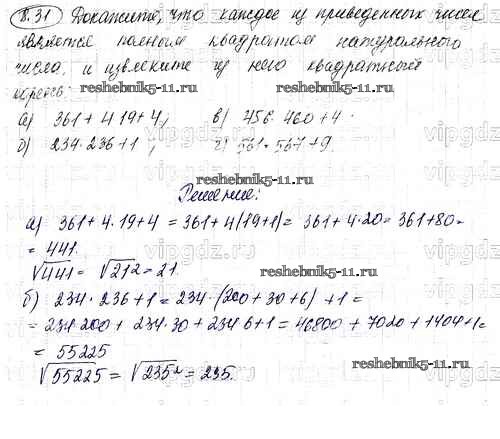 8.31 Докажите, что каждое из приведенных чисел
является полным квадратом натурального
числа, и извлеките из него квадратный
корень:
reshebnik5-11.ru
reshebnik5-11.ru
а) 361 + 4 · 19 + 4; в) 456 · 460 + 4
б) 234 · 236 + 1; г) 561 · 567 + 9
Решение:
а) 361 + 4 · 19 + 4 = 361 + 4(19+1) = 361 + 4 · 20 = 361 + 80 =
= 441.
√441 = √21² = 21.
reshebnik5-11.ru
б) 234 · 236 + 1 = 234 · (200 + 30 + 6) + 1 =
= 234 · 200 + 234 · 30 + 234 · 6 + 1 = 46800 + 7020 + 1404 + 1 =
= 55225
√55225 = √235² = 235.
reshebnik5-11.ru